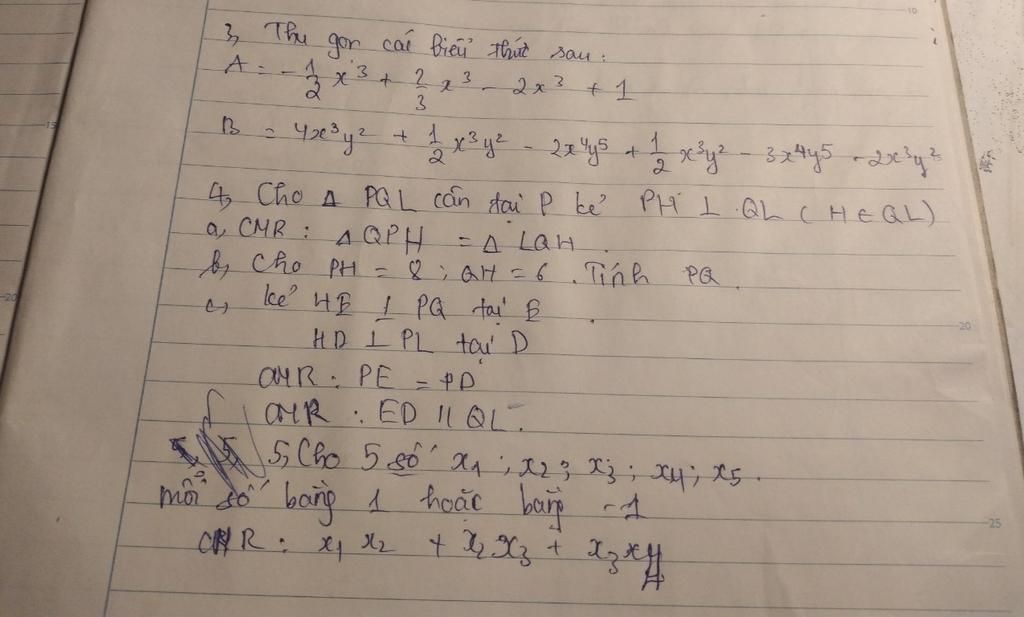 3, Thu gọn các biểu thức sau:
A = -1/2 x³ + 2/3 x³ - 2x³ + 1
B = 4x³y² + 1/2 x³y² - 2x⁴y⁵ + 1/2 x³y² - 3x⁴y⁵ - 2x³y²
4, Cho Δ PQL cân tại P kẻ PH ⊥ QL (H ∈ QL)
a, CMR: Δ QPH = Δ LQH.
b, Cho PH = 8; QH = 6. Tính PQ.
c, kẻ HE ⊥ PQ tại E.
HD ⊥ PL tại D
CMR: PE = PD
CMR: ED // QL.
5, Cho 5 số x₁; x₂; x₃; x₄; x₅.
mỗi số bằng 1 hoặc bằng -1
CMR: x₁x₂ + x₂x₃ + x₃x₄
10
15
20
20
25